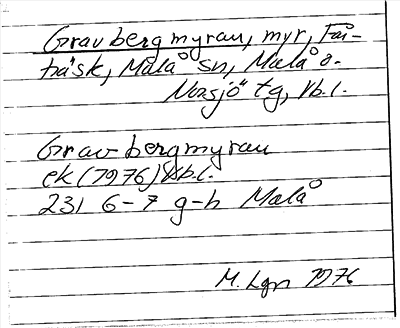 Gravbergmyran, myr, Få-
träsk, Malå sn, Malå o.
Norsjö tg, Vb.l.
Gravbergmyran
ek (1976) Vb.l.
231 6-7 g-h Malå
M. Lgn 1976